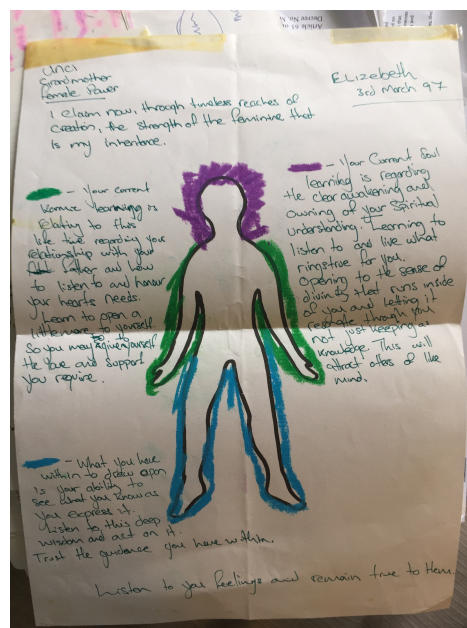 Unci
Grandmother
Female Power
Elizebeth
3rd March 97
I claim now, through timeless reaches of
creation, the strength of the feminine that
is my inheritence.
- Your current
Karmic learning is
relating to this
life time regarding your
relationship with your
father and how
to listen to and honour
your hearts needs.
Learn to open a
little more to yourself
So you may give yourself
the love and support
you require.
- Your Current Soul
learning is regarding
the clear awakening and
owning of your Spiritual
understanding. Learning to
listen to and live what
rings true for you.
Opening to the sense of
divinity that runs inside
of you and letting it
resonate through you
not just keeping as
knowledge. This will
attract others of like
mind.
- What you have
within to draw upon
is your ability to
see what you know as
you express it.
Listen to this deep
wisdom and act on it.
Trust the guidance you have within.
Listen to you feelings and remain true to them.
Article 61 of
Decree No.